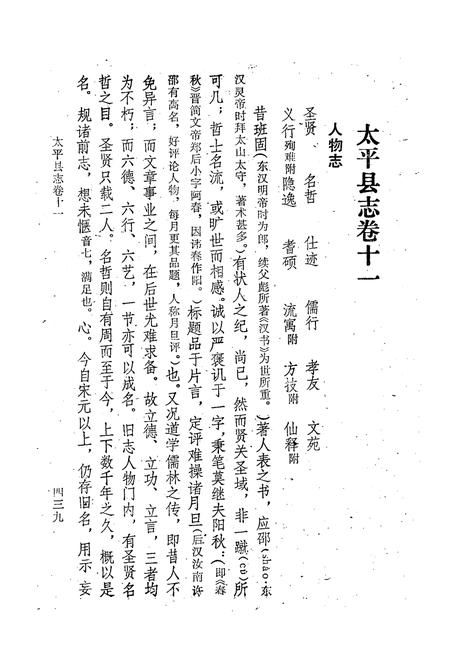 太平县志卷十一
人物志
圣贤　名哲　仕迹　儒行　孝友　文苑
义行殉难附　隐逸　耆硕　流寓附　方技附　仙释附
昔班固(东汉明帝时为郎，续父彪所著《汉书》为世所重。)著人表之书，应邵(shào·东
汉灵帝时拜太山太守，著术甚多。)有状人之纪，尚已，然而贤关圣域，非一蹴(cù)所
可几；哲士名流，或旷世而相感。诚以严褒讥于一字，秉笔莫继夫阳秋：(即《春
秋》晋简文帝郑后小字阿春，因讳春作阳。)标题品于片言，定评难操诸月旦(后汉汝南许
邵有高名，好评论人物，每月更其品题，人称月旦评。)也。又况道学儒林之传，即昔人不
免异言，而文章事业之间，在后世尤难求备。故立德、立功、立言，三者均
为不朽；而六德、六行、六艺，一节亦可以成名。旧志人物门内，有圣贤名
哲之目。圣贤只载二人。名哲则自有周而至于今，上下数千年之久，概以是
名。规诸前志，想未惬音七，满足也。心。今自宋元以上，仍存旧名，用示妄
太平县志卷十一
四三九